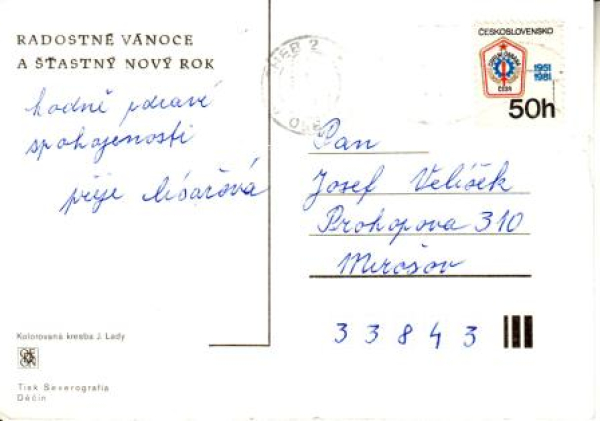 RADOSTNÉ VÁNOCE
A ŠŤASTNÝ NOVÝ ROK
hodně zdraví
spokojenosti
přeje
Kolorovaná kresba J. Lady
Tisk Severografia
Děčín
CHEB 2
ČESKOSLOVENSKO
1951
1981
ČSSR
50h
Pan
Josef Velíšek
Prokopova 310
Mirošov
33843